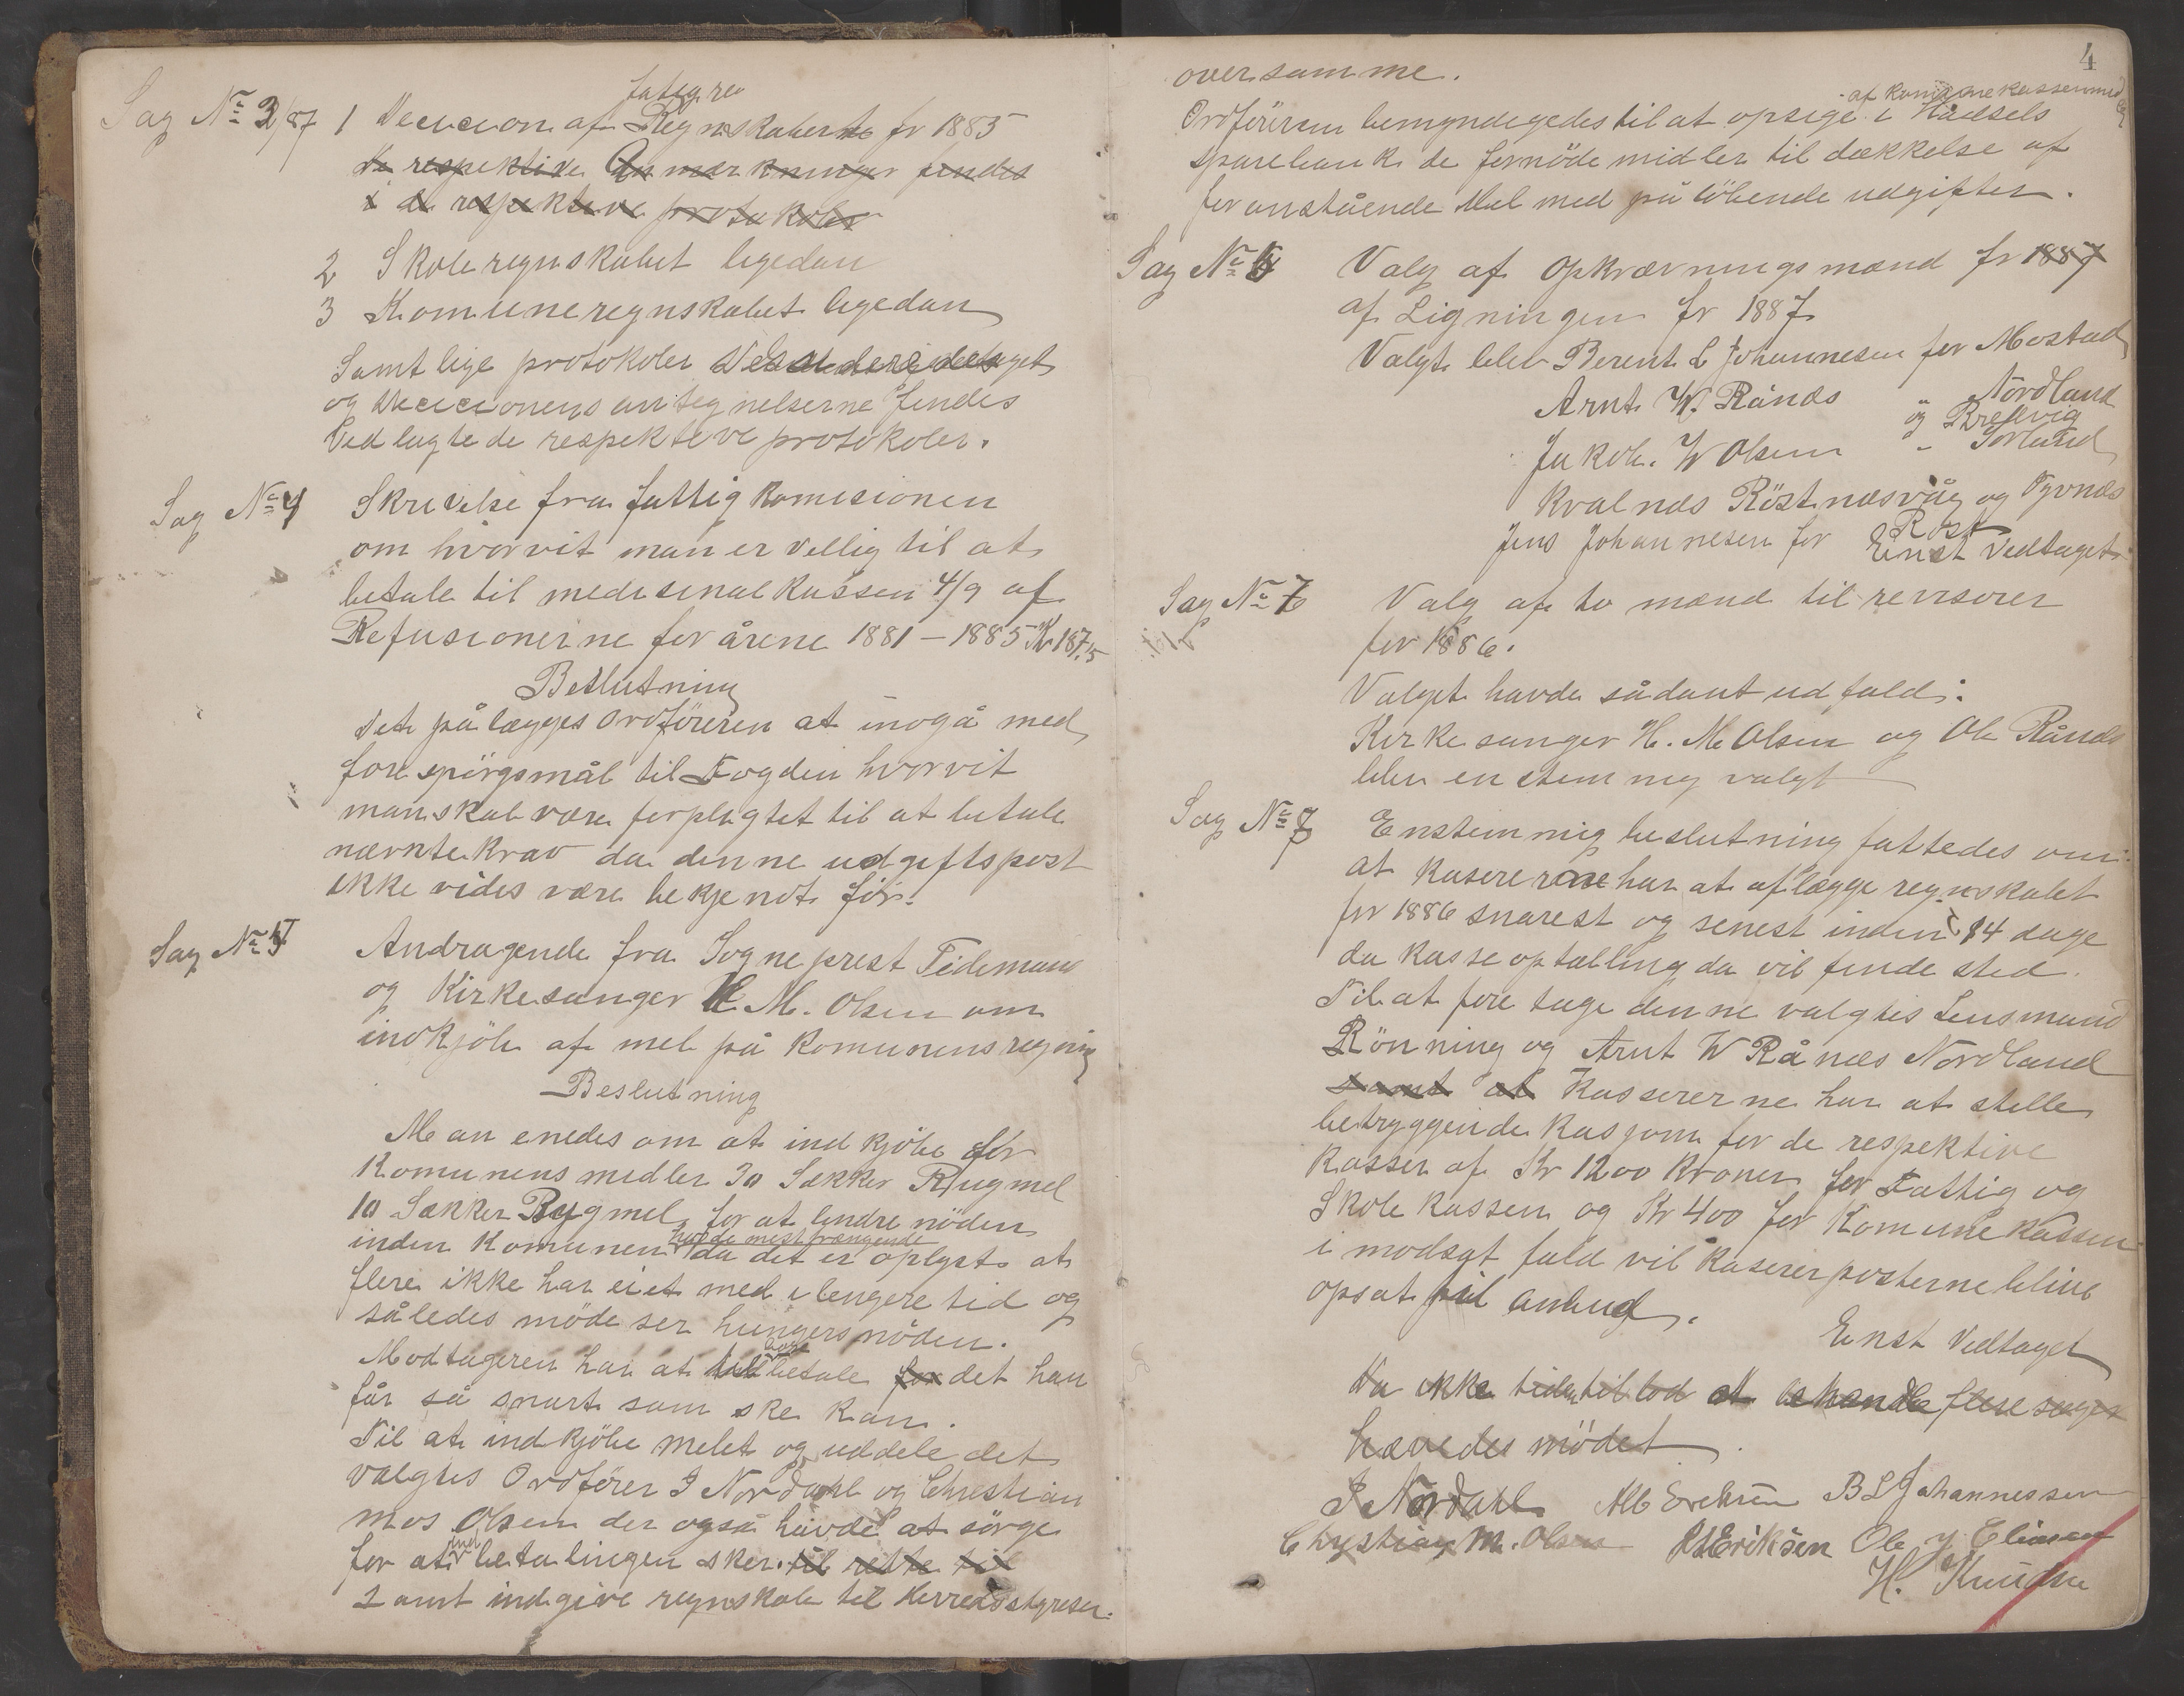 Sag No 3/87 1 Decicion af Fattigre Regnskaberne for 1885
de respektive Anmærkninger findes
i de respektive protokoler
2 Skoleregnskabet ligedan
3 Komuneregnskabet ligedan
Samtlige protokoler
og Decicionens antegnelserne findes
Vedlagte de respektive protokoler.
Sag No 4 Skrivelse fra fattigkomisionen
om hvorvit man er villig til at
betale til medisinalkassen 4/9 af
Refusionerne for årene 1881 – 1885 Kr 187.15
Beslutning
Det pålægges Ordføreren at inngå med
forespörgsmål til Fogden hvorvit
man skal være forpligtet til at betale
nævnte krav da denne udgiftspost
ikke vides være bekjendt för.
Sag No 5 Andragende fra Sogneprest Tidemand
og Kirkesanger H. M. Olsen om
indkjöb af mel på Komunens regning
Beslutning
Man enedes om at indkjöbe for
Komunens midler 30 Sækker Rugmel
10 Sækker Bygmel, for at lindre nöden
inden Komunen hos de mest trængende da det er oplyst at
flere ikke har eiet mel i lengere tid og
således möde ser hungersnöden.
Modtageren har at betale for det han
får så snart som ske kan.
Til at indkjöbe melet og uddele det
valgtes Ordförer J Nordahl og Christian
Mos Olsen der også havde at sörge
for at ind betalingen sker til rette tid
samt indgive regnskab til Herredsstyrelsen.
4
over samme.
af komunekassen med
Ordföreren bemyndigedes til at opsige i Hadsels
sparebank de fornöde midler til dækkelse af
foranstående Mel med påløbende udgifter.
Sag No 6 Valg af Opkrævningsmænd for 1887
af Ligningen for 1887
Valgt blev Berent L Johannesen for Mostad
Arnt W. Rånes " Nordland
og Breivig
Jakob W Olsen " Sörland
Kvalnes Röstnæsvåg og Tyvnæs
Jens Johannesen for Röst
Enst Vedtaget
Sag No 7 Valg af to mænd til revisorer
for 1886.
Valget havde sådant udfald:
Kirkesanger H. M Olsen og Ole Rånes
blev enstemmig valgt
Sag No 7 Enstemmig beslutning fattedes om
at Kasererne har at aflægge regnskabet
for 1886 snarest og senest inden 14 dage
da kasseoptælling da vil finde sted.
Til at foretage denne valgtes Lensmand
Rönning og Arnt W Rånes Nordland
samt at Kassererne har at stille
betryggende Kasjon for de respektive
Kasser af Kr 1200 Kroner for Fattig og
Skolekassen og Kr 400 for Komunekassen
i modsat fald vil Kasererposterne blive
opsat til anbud.
Enst Vedtaget
Da ikke tiden tillod at behandle flere sager
hævedes mödet.
J Nordahl Alb Erelsen B L Johannessen
Christian M. Olsen Eriksen Ole J. Eliasen
H. Knudsen